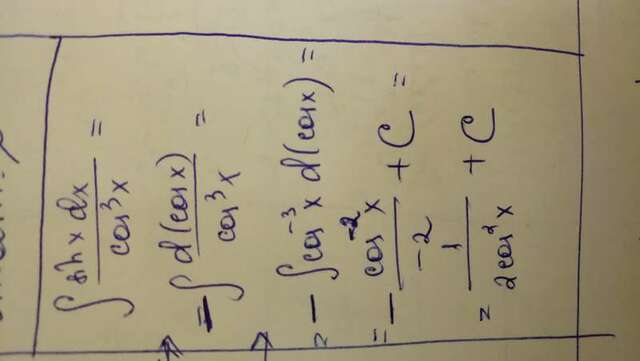 ∫ sin x dx / cos³x =
= -∫ d(cos x) / cos³x =
= - ∫ cos⁻³x d(cos x) =
= - cos⁻²x / -2 + C =
= 1 / 2cos²x + C